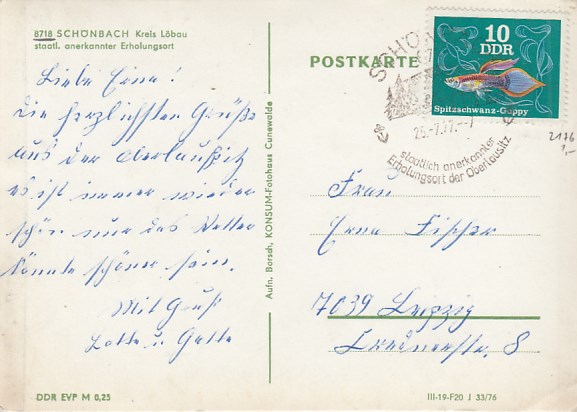 8718 SCHÖNBACH Kreis Löbau
staatl. anerkannter Erholungsort
Liebe Erna!
Die herzlichsten Grüße
aus der Oberlausitz
es ist immer wieder
schön nur das Wetter
könnte schöner sein.
Mit Gruß
Lotte u. Gatte
DDR EVP M 0,25
Aufn. Borsch, KONSUM-Fotohaus Cunewalde
POSTKARTE
10
DDR
Spitzschwanz-Guppy
25.-7.77.-7
staatlich anerkannter
Erholungsort der Oberlausitz
2176
1,-
Frau
Erna Fischer
7039 Leipzig
III-19-F20 J 33/76